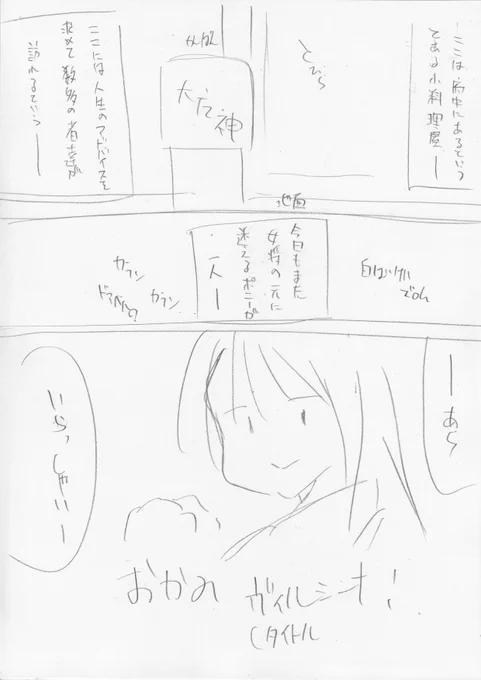 ここは府中にあるという
とある小料理屋―
とびら
かんばん
大定神
ここには人生のアドバイスを
求めて数多の者達が
訪れるという―
地面
白ぬけ
でOK
今日もまた
女将の元に
迷えるポニーが
一人―
カラン
カラン
ドアベル
―あら
いらっしゃいー
おかみ ヴィルシーナ!
(タイトル